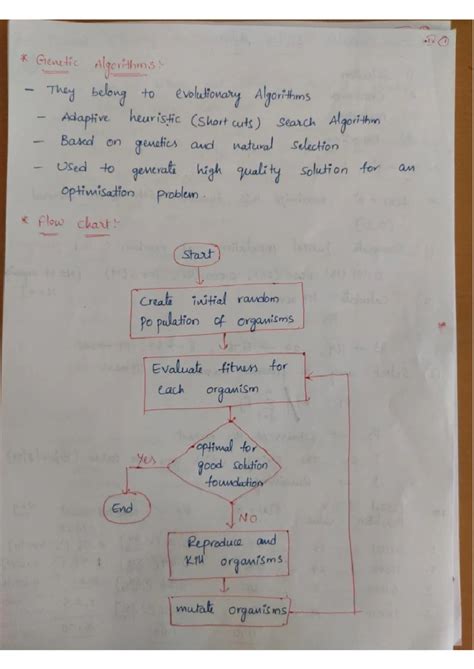 * Genetic Algorithms:-
- They belong to evolutionary Algorithms
- Adaptive heuristic (Short cuts) Search Algorithm
- Based on genetics and natural selection
- Used to generate high quality solution for an
optimisation problem.
* Flow chart:-
Start
Create initial random
population of organisms
Evaluate fitness for
each organism
optimal for
good solution
foundation
Yes
End
NO
Reproduce and
Kill organisms
mutate organisms